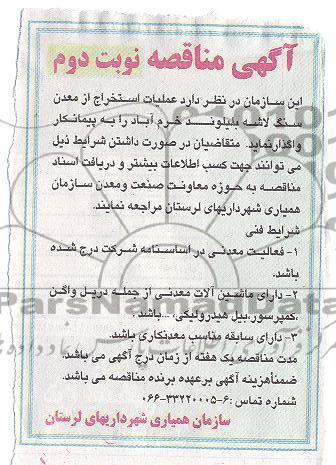 آگهی مناقصه نوبت دوم
این سازمان در نظر دارد عملیات استخراج از معدن
سنگ لاشه بلیلوند خرم آباد را به پیمانکار
واگذارنماید. متقاضیان در صورت داشتن شرایط ذیل
می توانند جهت کسب اطلاعات بیشتر و دریافت اسناد
مناقصه به حوزه معاونت صنعت ومعدن سازمان
همیاری شهرداریهای لرستان مراجعه نمایند.
شرایط فنی
۱- فعالیت معدنی در اساسنامه شرکت درج شده
باشد.
۲- دارای ماشین آلات معدنی از جمله دریل واگن
،کمپرسور،بیل هیدرولیکی، ...باشد
۳- دارای سابقه مناسب معدنکاری باشد.
مدت مناقصه یک هفته از زمان درج آگهی می باشد.
ضمنأهزینه آگهی برعهده برنده مناقصه می باشد.
شماره تماس :۶-۳۳۲۲۰۰۰۵-۰۶۶
سازمان همیاری شهرداریهای لرستان
ParsNamadData